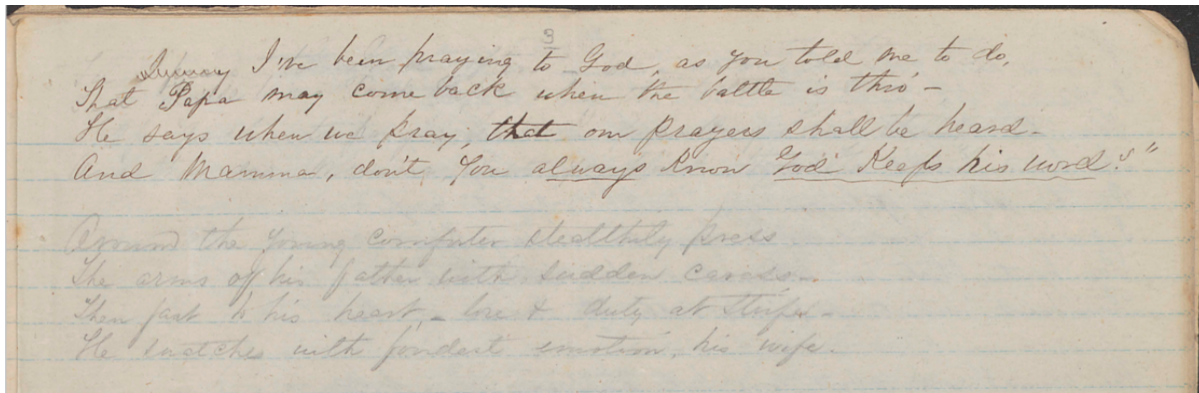 3
I've been praying to God, as you told me to do,
That Papa may come back when the battle is thro' –
He says when we pray, that our prayers shall be heard –
And Mamma, don't you always know God keeps his word?"
Around the young comforter stealthily press
The arms of his father with sudden caress –
Then fast to his heart, – love & duty at strife –
He snatches with fondest emotion, his wife –